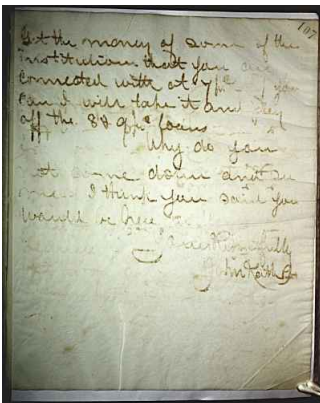 107
Get the money of some of the
institutions that you are
connected with at 7 pc if you
can I will take it and pay
off the 8 & 9 pc loans
Why do you
not come down and see
me I think you said you
would be here
Yours Respectfully
John Keith